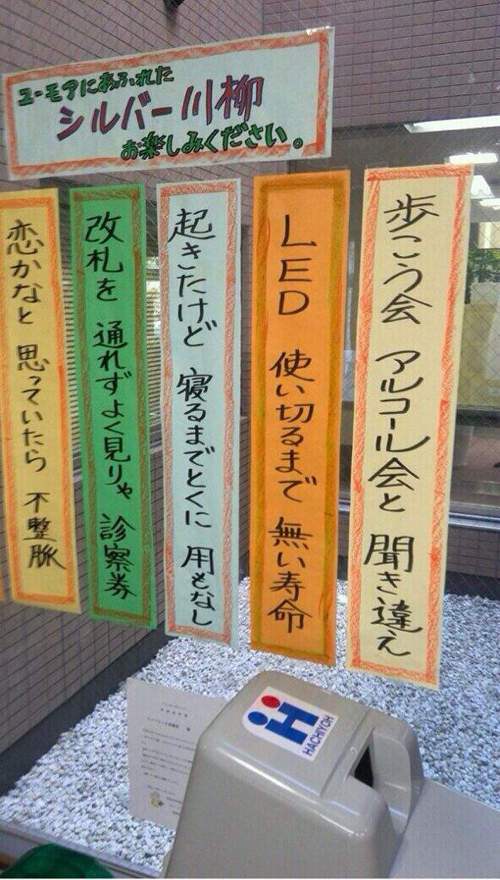 ユーモアにあふれた
シルバー川柳
お楽しみください。
歩こう会 アルコール会と 聞き違え
LED 使い切るまで 無い寿命
起きたけど 寝るまでとくに 用もなし
改札を 通れずよく見りゃ 診察券
恋かなと 思っていたら 不整脈
HACHITOH